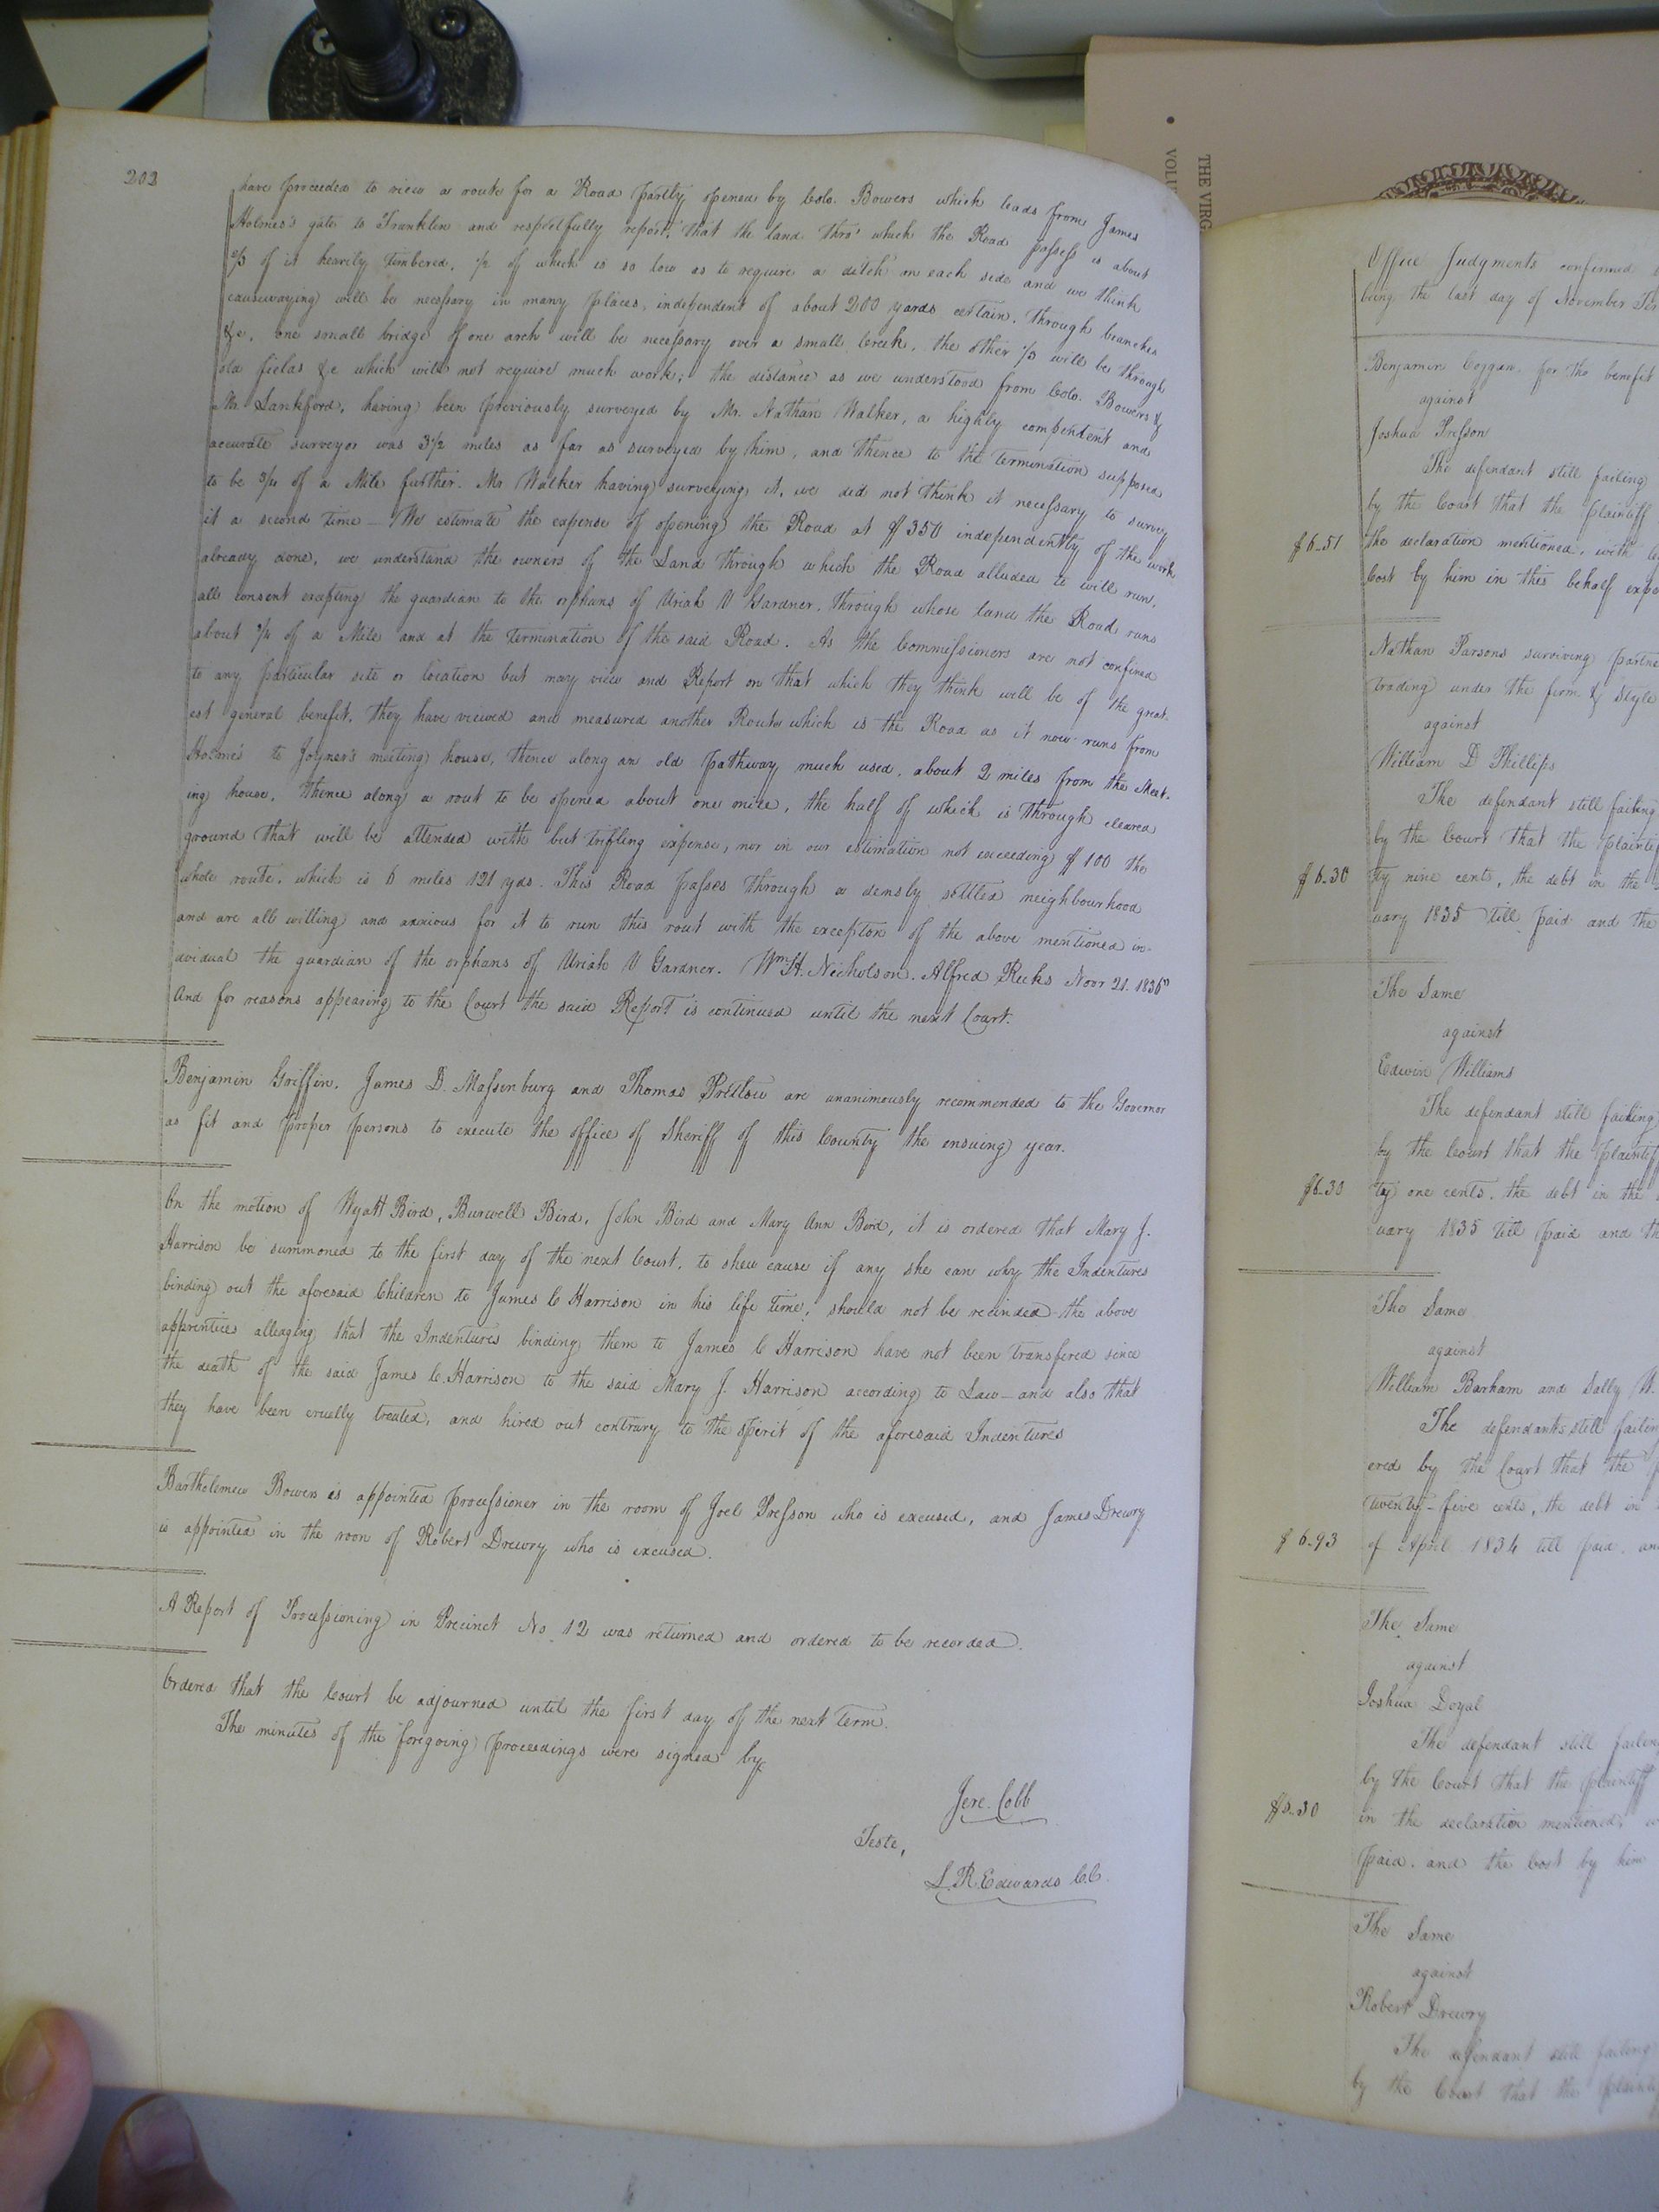 202
have proceeded to view a route for a Road partly opened by Colo. Bowers which leads from James
Holmes's gate to Franklin and respectfully report, that the land thro' which the Road passess is about
2/3 of it heavily timbered, 1/2 of which is so low as to require a ditch on each side and we think
causewaying will be necessary in many places, independent of about 200 yards certain, through branches
&c, one small bridge of one arch will be necessary over a small creek, the other 1/3 will be through
old fields &c which will not require much work; the distance as we understood from Colo. Bowers &
Mr. Lankford, having been previously surveyed by Mr. Nathan Walker, a highly compentent and
accurate surveyor was 3 1/2 miles as far as surveyed by him, and thence to the termination supposed
to be 3/4 of a Mile further. Mr Walker having surveying it, we did not think it necessary to survey
it a second time — We estimate the expense of opening the Road at $350 independently of the work
already done, we understand the owners of the Land through which the Road alluded to will run,
all consent excepting the guardian to the orphans of Uriah V Gardner, through whose land the Road runs
about 3/4 of a Mile and at the termination of the said Road. As the Commissioners are not confined
to any particular site or location but may view and Report on that which they think will be of the great-
est general benefit, they have viewed and measured another Route which is the Road as it now runs from
Holme's to Joyner's meeting house, thence along an old pathway much used, about 2 miles from the Meet-
ing house, thence along a rout to be opened about one mile, the half of which is through cleared
ground that will be attended with but trifling expense, nor in our estimation not exceeding $100 the
whole route, which is 6 miles 121 yds. This Road passes through a densly settled neighbourhood
and are all willing and anxious for it to run this rout with the exception of the above mentioned in-
dividual the guardian of the orphans of Uriah V Gardner. Wm H. Nicholson. Alfred Ricks Novr 21. 1836"
And for reasons appearing to the Court the said Report is continued until the next Court.
Benjamin Griffin, James D. Massenburg and Thomas Pretlow are unanimously recommended to the Governor
as fit and proper persons to execute the office of Sheriff of this County the ensuing year.
On the motion of Wyatt Bird, Burwell Bird, John Bird and Mary Ann Bird, it is ordered that Mary J.
Harrison be summoned to the first day of the next Court, to shew cause if any she can why the Indentures
binding out the aforesaid Children to James C Harrison in his life time, should not be recinded the above
apprentices alledging that the Indentures binding them to James C Harrison have not been transfered since
the death of the said James C. Harrison to the said Mary J. Harrison according to Law — and also that
they have been cruelly treated, and hired out contrary to the spirit of the aforesaid Indentures
Bartholomew Bowers is appointed processioner in the room of Joel Presson who is excused, and James Drewry
is appointed in the room of Robert Drewry who is excused.
A Report of Processioning in Precinct No 12 was returned and ordered to be recorded.
Ordered that the Court be adjourned until the first day of the next term.
The minutes of the foregoing proceedings were signed by
Jere. Cobb
Teste,
L. R. Edwards C.C.
THE VIRG
VOLU
Office Judgments confirmed
being the last day of November
Benjamin Coggan for the benefit
against
Joshua Presson
The defendant still failing
by the Court that the Plaintiff
$6.51 the declaration mentioned, with
Cost by him in this behalf
Nathan Parsons surviving
trading under the firm & Style
against
William D Phillips
The defendant still failing
by the Court that the
$6.30 ty nine cents, the debt in the
uary 1835 till paid and the
The Same
against
Edwin Williams
The defendant still failing
by the Court that the
$6.30 ty one cents, the debt in the
uary 1835 till paid and
The Same
against
William Barham and Sally
The defendants still
ered by the Court that the
twenty-five cents, the debt in
$6.93 of April 1834 till paid, an
The Same
against
Joshua Doyal
The defendant still
by the Court that the plaintiff
in the declaration mentioned,
paid. and the Cost by him
The Same
against
Robert Drewry
The defendant still failing
by the Court that the